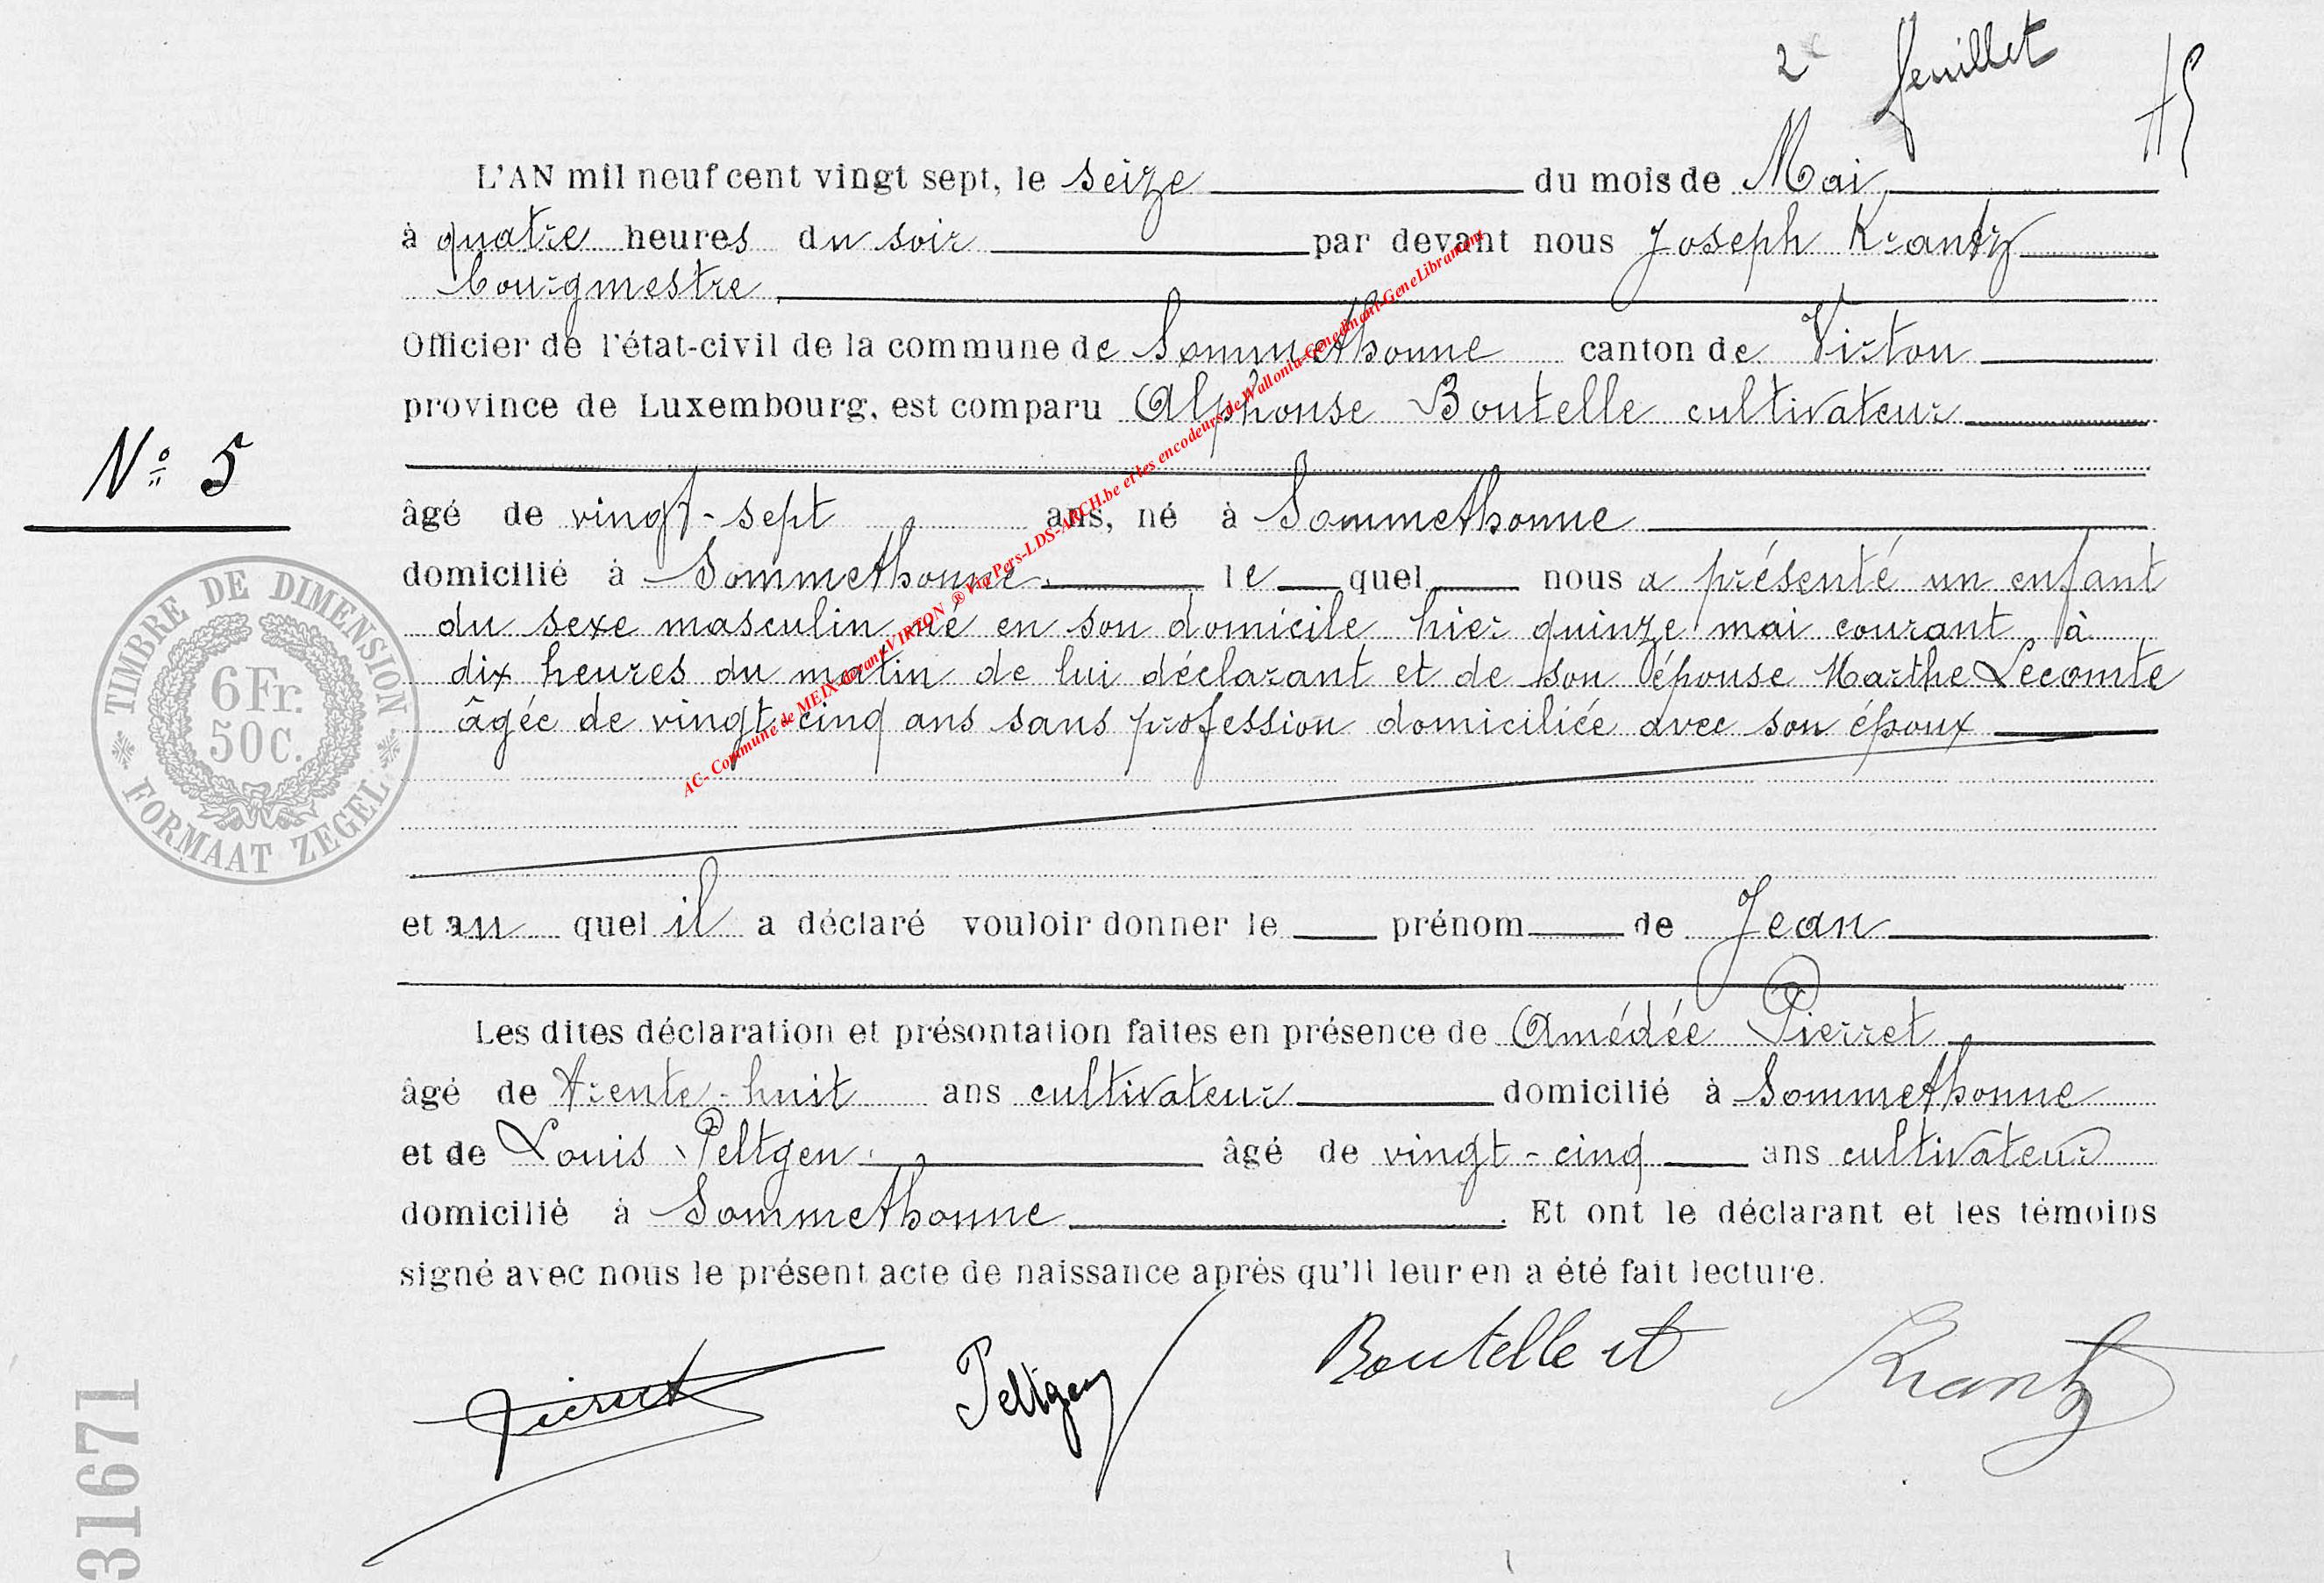 2e feuillet
L'AN mil neuf cent vingt sept, le seize du mois de Mai
à quatre heures du soir par devant nous Joseph Krantz
bourgmestre
Officier de l'état-civil de la commune de Sommethonne canton de Virton
province de Luxembourg, est comparu Alphonse Boutelle cultivateur
N° 5
âgé de vingt-sept ans, né à Sommethonne
domicilié à Sommethonne. le quel nous a présenté un enfant
du sexe masculin né en son domicile hier quinze mai courant à
dix heures du matin de lui déclarant et de son épouse Marthe Lecomte
âgée de vingt-cinq ans sans profession domiciliée avec son époux
TIMBRE DE DIMENSION
6 Fr.
50 C.
FORMAAT ZEGEL
et au quel il a déclaré vouloir donner le prénom de Jean
Les dites déclaration et présontation faites en présence de Amédée Pierret
âgé de trente-huit ans cultivateur domicilié à Sommethonne
et de Louis Peltgen. âgé de vingt-cinq ans cultivateur
domicilié à Sommethonne. Et ont le déclarant et les témoins
signé avec nous le présent acte de naissance après qu'il leur en a été fait lecture.
Pierret Peltgen Boutelle et Krantz
31671
AC- Commune de MEIX-devant-VIRTON ® Via Pers-LDS-ARCH.be et les encodeurs de Wallonia-Genedinant-GeneLibramont